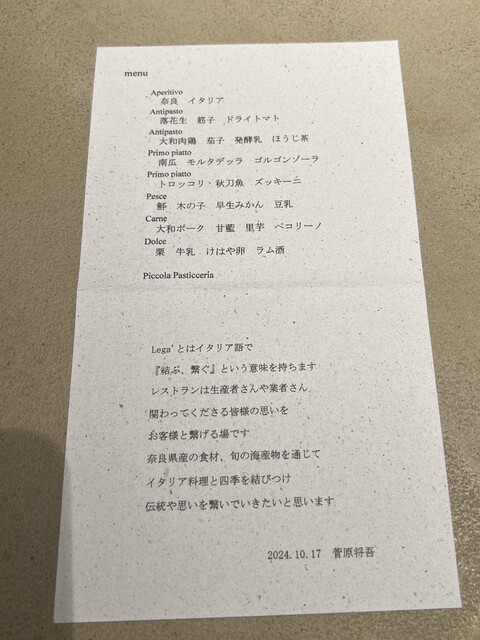 menu
Aperitivo
奈良 イタリア
Antipasto
落花生 筋子 ドライトマト
Antipasto
大和肉鶏 茄子 発酵乳 ほうじ茶
Primo piatto
南瓜 モルタデッラ ゴルゴンゾーラ
Primo piatto
トロッコリ 秋刀魚 ズッキーニ
Pesce
木の子 早生みかん 豆乳
Carne
大和ポーク 甘藍 里芋 ペコリーノ
Dolce
栗 牛乳 けはや卵 ラム酒
Piccola Pasticceria
Lega'とはイタリア語で
『結ぶ、繋ぐ』という意味を持ちます
レストランは生産者さんや業者さん
関わってくださる皆様の思いを
お客様と繋げる場です
奈良県産の食材、旬の海産物を通じて
イタリア料理と四季を結びつけ
伝統や思いを繋いでいきたいと思います
2024.10.17 菅原将吾